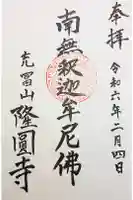 奉拝
令和六年二月四日
南無釈迦牟尼佛
隆圓寺